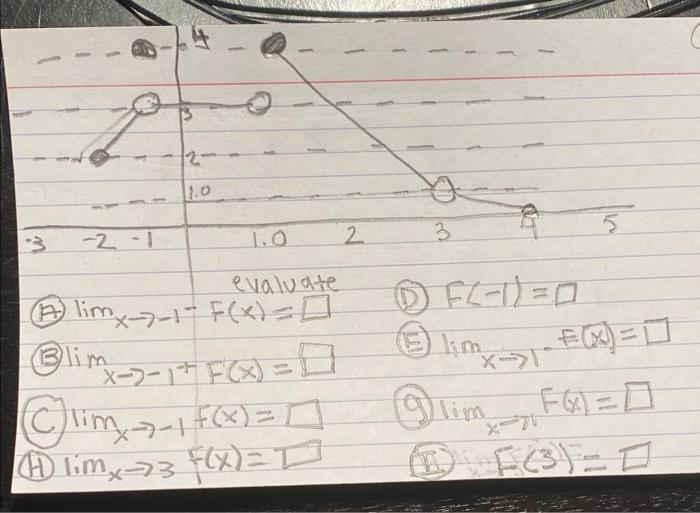 4
3
2
1.0
-3 -2 -1 1.0 2 3 4 5
evaluate
(A) lim x→-1⁻ F(x) = □
(B) lim x→-1⁺ F(x) = □
(C) lim x→-1 f(x) = □
(H) lim x→3 f(x) = □
(D) F(-1) = □
(E) lim x→1⁻ F(x) = □
(g) lim x→1 F(x) = □
(II) F(3) = □